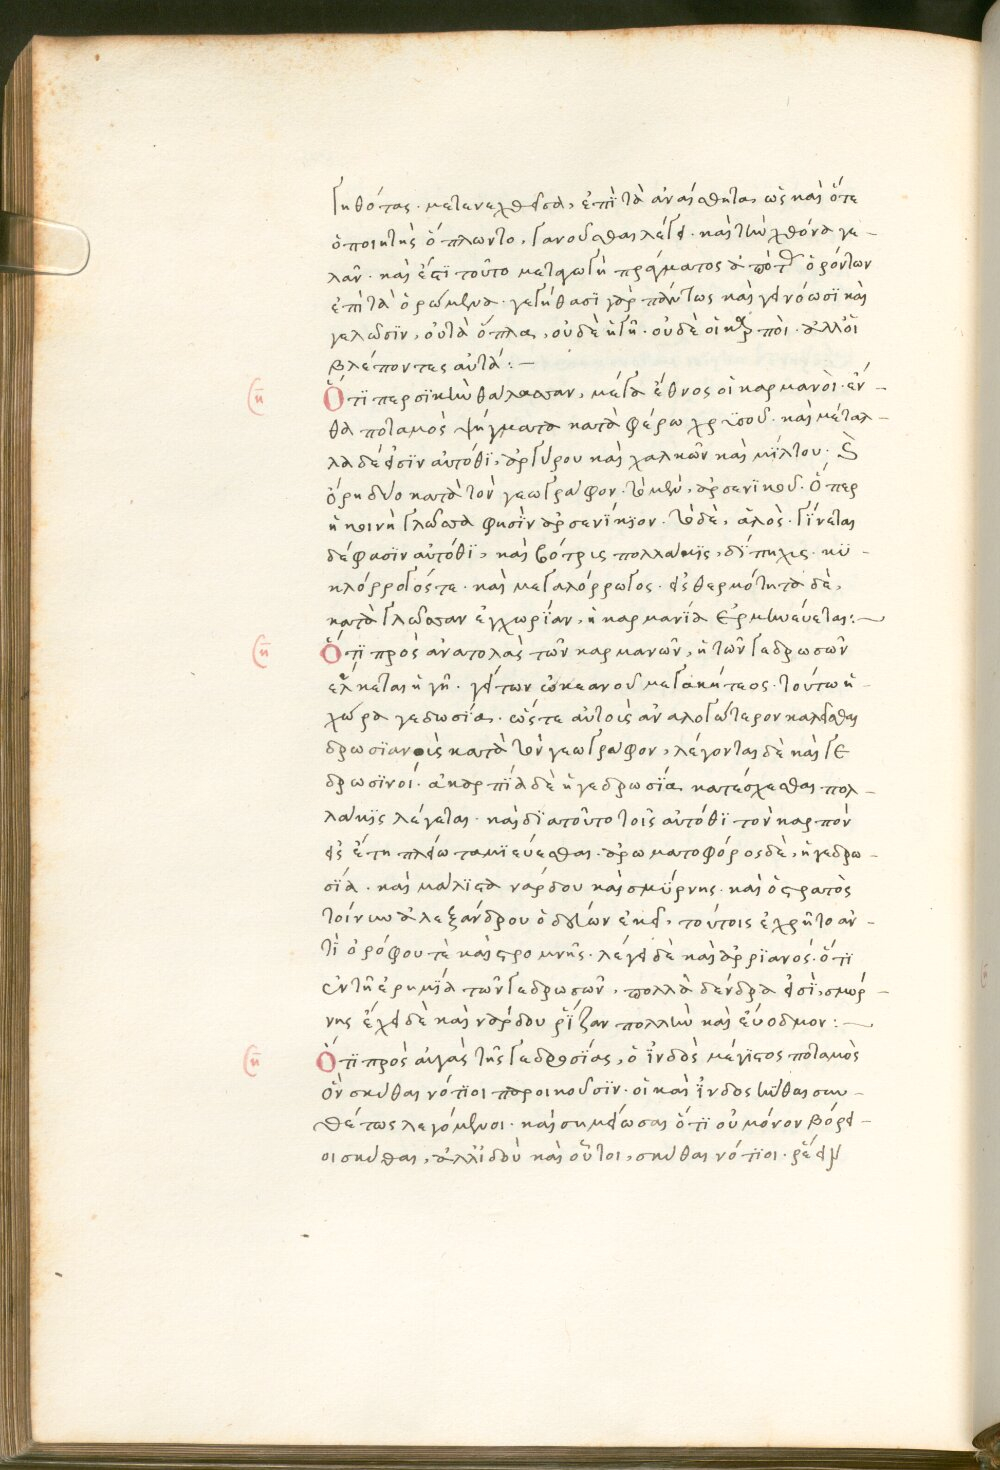 γηθότας· μετενεχθεῖσα, ἐπὶ τὰ ἀναίσθητα, ὡς καὶ ὅτε
ὁ ποιητὴς ὅπλων τὸ, γανοῦσθαι λέγει· καὶ τὴν χθόνα γε-
λᾶν· καὶ ἔστι τοῦτο μεταγωγὴ πράγματος ἀπὸ τῶν ὁρόντων
ἐπὶ τὰ ὁρώμενα· γεγήθασι γὰρ πάντως καὶ γανόωσι καὶ
γελῶσιν, οὐ τὰ ὅπλα, οὐδὲ ἡ γῆ· οὐδὲ οἱ καρποὶ· ἀλλ' οἱ
βλέποντες αὐτά:-
Ὅτι περσικὴν θάλασσαν, μέγα ἔθνος οἱ καρμανοὶ· ἔν-
θα ποταμὸς ψήγματα καταφέρει χρυσοῦ· καὶ μέταλ-
λα δέ εἰσιν αὐτόθι, ἀργύρου καὶ χαλκῶν καὶ μίλτου· καὶ
ὄρη δύο κατὰ τὸν γεωγράφον· τὸ μὲν, ἀρσενικοῦ· ὅπερ
ἡ κοινὴ γλῶσσα φησὶν ἀρσενίκιον· τὸ δὲ, ἁλὸς· γίνεται
δέ φασιν αὐτόθι, καὶ βότρις πολλάκις, δίπηχις· πυ-
κλόρρογός τε· καὶ μεγαλόρρωγος· εἰς θερμότητα δὲ,
κατὰ γλῶσσαν ἐγχωρίαν, ἡ καρμανία ἑρμηνεύεται:-
Ὅτι πρὸς ἀνατολὰς τῶν καρμανῶν, ἡ τῶν γεδρωσῶν
ἕλκεται ἡ γῆ· γείτων ὠκεανοῦ μεγακήτεος· τούτω ἡ-
χώρα γεδωσία· ὥστε αὐτοὶς ἀναλογώτερον καλεῖσθαι
δρωσιανοὶς κατὰ τὸν γεωγράφον, λέγονται δὲ καὶ γε
δρωσινοί· ἀκαρπία δὲ ἡ γεδρωσία, κατέσχεσθαι πολ-
λάκις λέγεται· καὶ διατοῦτο τοῖς αὐτόθι τὸν καρπὸν
εἰς ἔτη πλείω ταμιεύεσθαι· ἀρωματοφόρος δὲ, ἡ γεδρω-
σία· καὶ μάλιστα νάρδου καὶ σμύρνης· καὶ ὁ στρατὸς
τοίνυν ἀλεξάνδρου ὁδεύων ἐκεῖ, τούτοις ἐχρῆτο ἀν-
τὶ ὀρόφου τὲ καὶ στρομνῆς· λέγει δὲ καὶ ἀρριανός· ὅτι
ἐν τῇ ἐρημία τῶν γεδρωσῶν, πολλὰ δένδρα εἰσὶ, σμύρ-
νης ἔχει δὲ καὶ νάρδου ῥίζαν πολλὴν καὶ εὔοδμον:-
Ὅτι πρὸς αὐγὰς τῆς γεδρωσίας, ὁ ἰνδὸς μέγιστος ποταμὸς
ὃν σκύθαι νότιοι παροικοῦσιν· οἱ καὶ ἰνδοσκύθαι συν-
θέτως λεγόμενοι· καὶ σημείωσαι ὅτι οὐ μόνον βόρει-
οι σκύθαι, ἀλλ' ἰδοὺ καὶ οὗτοι, σκύθαι νότιοι· ῥέει μὲν